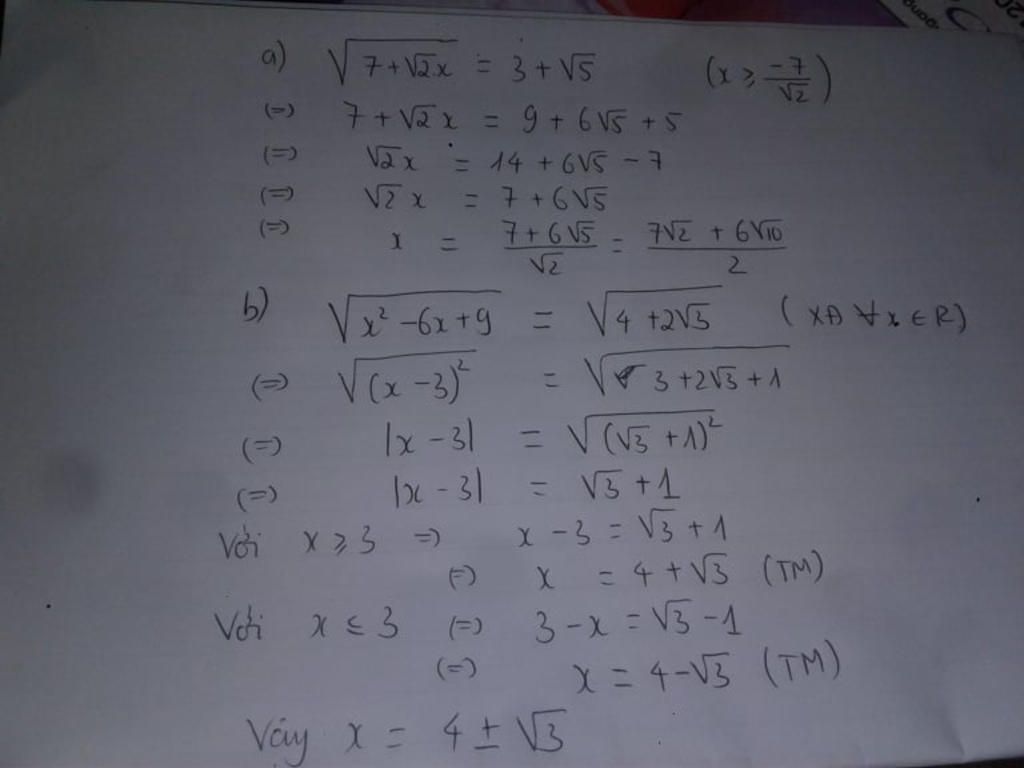 a) √(7+√2x) = 3+√5 (x ≥ -7/√2)
(=) 7+√2x = 9+6√5+5
(=) √2x = 14+6√5-7
(=) √2x = 7+6√5
(=) x = (7+6√5)/√2 = (7√2+6√10)/2
b) √(x²-6x+9) = √(4+2√3) (XĐ ∀x∈R)
(=) √((x-3)²) = √(3+2√3+1)
(=) |x-3| = √((√3+1)²)
(=) |x-3| = √3+1
Với x ≥ 3 =) x-3 = √3+1
(=) x = 4+√3 (TM)
Với x ≤ 3 (=) 3-x = √3-1
(=) x = 4-√3 (TM)
Vậy x = 4±√3